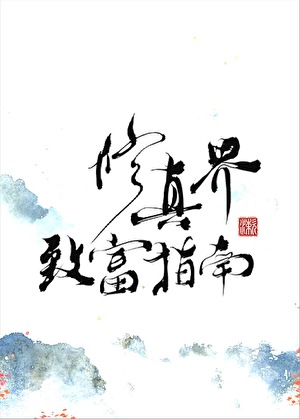 修真界
致富指南